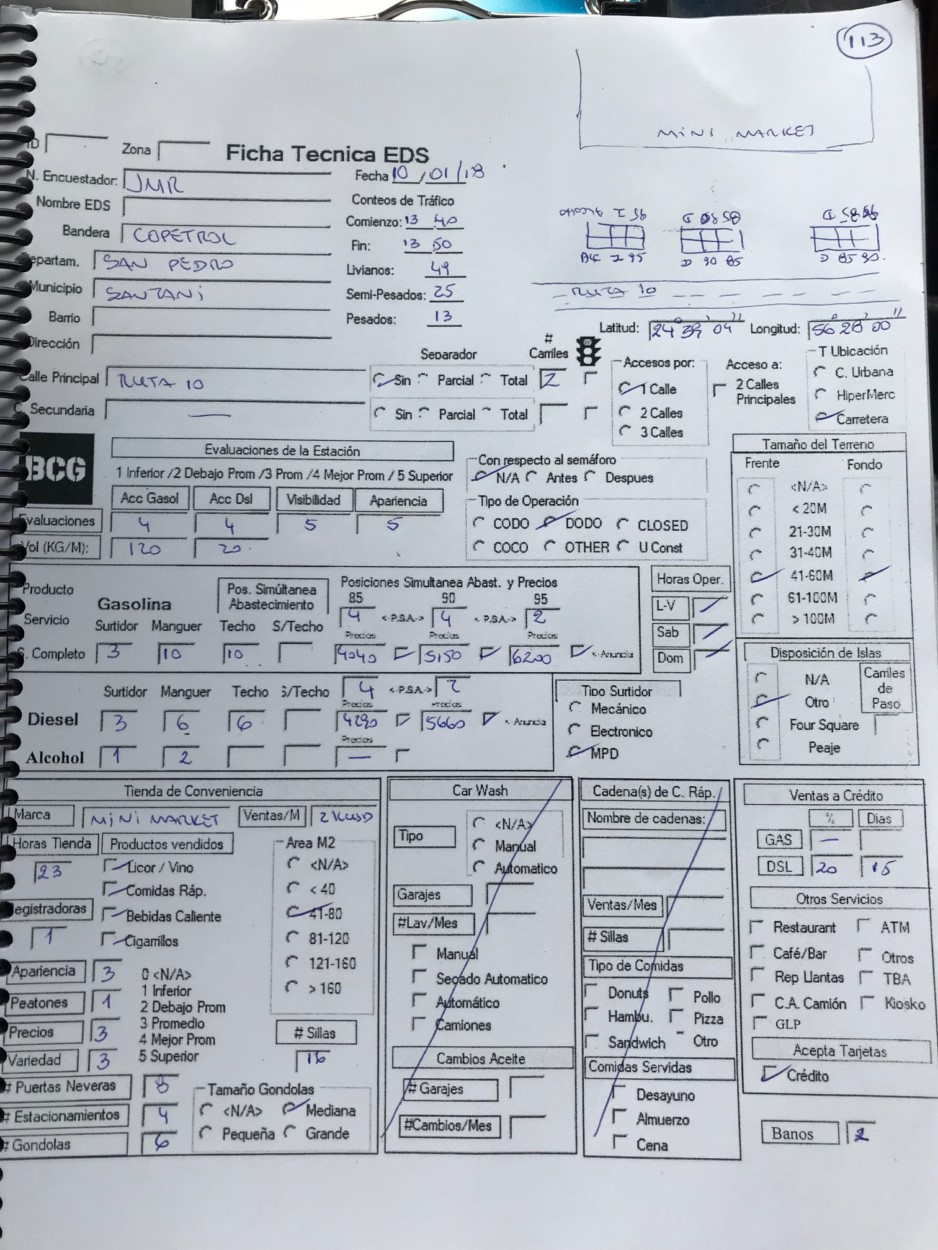 113
MINI MARKET
ID Zona Ficha Tecnica EDS
N. Encuestador: JMR Fecha 10/01/18
Nombre EDS Conteos de Tráfico
Comienzo: 13 40
Bandera COPETROL Fin: 13 50
Departam. SAN PEDRO Livianos: 49
Municipio SANTANI Semi-Pesados: 25
Barrio Pesados: 13
95 2 Alcohol D 90 85 90 85 D
ALC 2 95 D 90 85 D 85 90.
RUTA 10
Latitud: 24° 39' 04" Longitud: 56° 28' 00"
Dirección
Separador # Carriles Accesos por: Acceso a: T Ubicación
Calle Principal RUTA 10 Sin Parcial Total 2 1 Calle 2 Calles Principales C. Urbana
C. Secundaria — Sin Parcial Total 2 Calles HiperMerc
3 Calles Carretera
BCG
Evaluaciones de la Estación
1 Inferior /2 Debajo Prom /3 Prom /4 Mejor Prom / 5 Superior
Acc Gasol Acc Dsl Visibilidad Apariencia
Evaluaciones 4 4 5 5
Vol (KG/M): 120 20
Con respecto al semáforo
N/A Antes Despues
Tipo de Operación
CODO DODO CLOSED
COCO OTHER U Const
Tamaño del Terreno
Frente Fondo
<N/A>
< 20M
21-30M
31-40M
41-60M
61-100M
> 100M
Producto Gasolina Pos. Simúltanea Abastecimiento Posiciones Simultanea Abast. y Precios
85 90 95
Servicio 4 <-P.S.A.-> 4 <-P.S.A.-> 2
Surtidor Manguer Techo S/Techo Precios Precios Precios
S. Completo 3 10 10 4040 5150 6200 <-Anuncia
Horas Oper.
L-V
Sab
Dom
Surtidor Manguer Techo S/Techo 4 <-P.S.A.-> 2
Precios Precios
Diesel 3 6 6 4290 5660 <-Anuncia
Precios
Alcohol 1 2 —
Tipo Surtidor
Mecánico
Electronico
MPD
Disposición de Islas
N/A Carriles de Paso
Otro
Four Square
Peaje
Tienda de Conveniencia
Marca MINI MARKET Ventas/M 2KUSD
Horas Tienda 23 Productos vendidos Area M2
Licor / Vino <N/A>
Comidas Ráp. < 40
Registradoras 1 Bebidas Caliente 41-80
Cigarrillos 81-120
121-160
> 160
Apariencia 3 0 <N/A>
1 Inferior
Peatones 1 2 Debajo Prom
Precios 3 3 Promedio
4 Mejor Prom # Sillas
Variedad 3 5 Superior 16
# Puertas Neveras 8 Tamaño Gondolas
# Estacionamientos 4 <N/A> Mediana
# Gondolas 6 Pequeña Grande
Car Wash
Tipo <N/A>
Manual
Automatico
Garajes
#Lav/Mes
Manual
Secado Automatico
Automático
Camiones
Cambios Aceite
# Garajes
#Cambios/Mes
Cadena(s) de C. Ráp.
Nombre de cadenas:
Ventas/Mes
# Sillas
Tipo de Comidas
Donuts Pollo
Hambu. Pizza
Sandwich Otro
Comidas Servidas
Desayuno
Almuerzo
Cena
Ventas a Crédito
% Dias
GAS —
DSL 20 15
Otros Servicios
Restaurant ATM
Café/Bar Otros
Rep Llantas TBA
C.A. Camión Kiosko
GLP
Acepta Tarjetas
Crédito
Banos 2